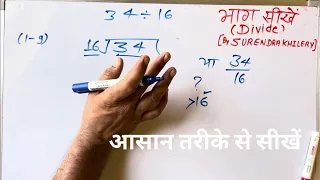 34÷16
भाग सीखें
(Divide)
[By SURENDRA KHILERY]
(1-9)
16)34
या 34/16
?
>16
आसान तरीके से सीखें